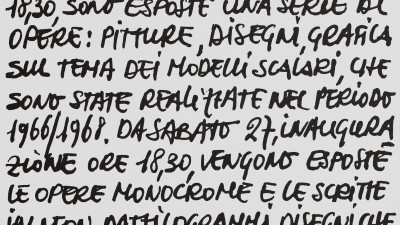 18,30, SONO ESPOSTE UNA SERIE DI
OPERE: PITTURE, DISEGNI, GRAFICA
SUL TEMA DEI MODELLI SCALARI, CHE
SONO STATE REALIZZATE NEL PERIODO
1966/1968. DA SABATO 27, INAUGURA
ZIONE ORE 18,30, VENGONO ESPOSTE
LE OPERE MONOCROME E LE SCRITTE
DISEGNI CHE